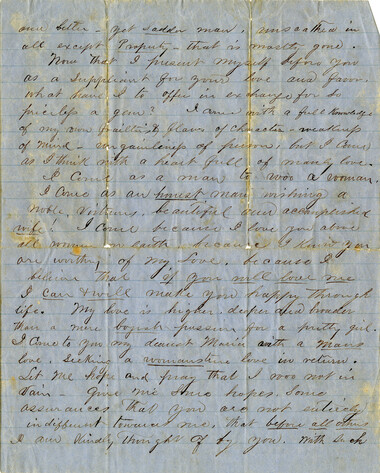 and better - yet sadder man, unscathed in
all except Property - that is mostly gone.
Now that I present myself before you
as a Suppliant for your love and favor.
What have I to offer in exchange for so
priceless a gem? I come with a full knowledge
of my own frailties, flaws of character - weakness
of mind - ungainliness of person, but I come
as I think with a heart full of manly love.
I come as a man to woo a woman.
I come as an honest man wishing a
noble, virtuous, beautiful and accomplished
wife! I come because I love you above
all women on earth, because I know you
are worthy of my love, because I
believe that if you will love me
I can & will make you happy through
life. My love is higher, deeper and broader
than a mere boyish passion for a pretty girl.
I come to you my dearest Maria with a mans
love, seeking a womans true love in return.
Let me hope and pray that I woo not in
vain - give me some hopes, some
assurances that you are not entirely
indifferent towards me, that before all others
I am kindly thought of by you. With such